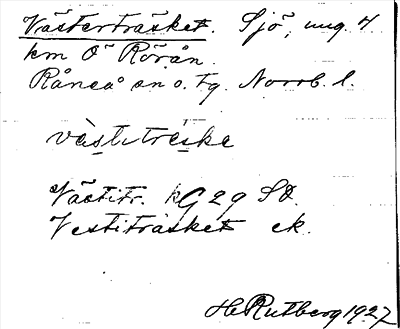 Västerträsket. Sjö, ung. 4
km Ö Rörån.
Råneå sn o. tg. Norrb. l.
västiträske
Västitr. kG 29 SO.
Vestiträsket ek.
H Rutberg 1927